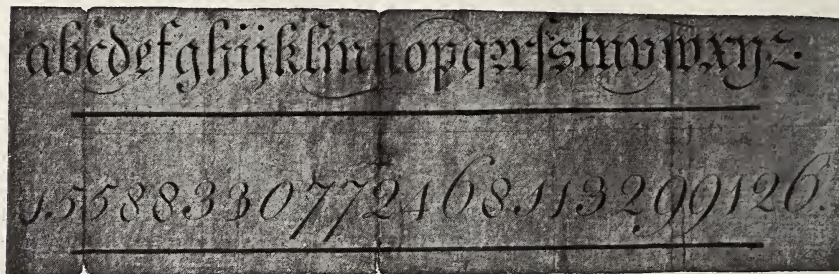 abcdefghijklmnopqꝛrſstuvwxyz.
1.5588330772468.1132.99126.